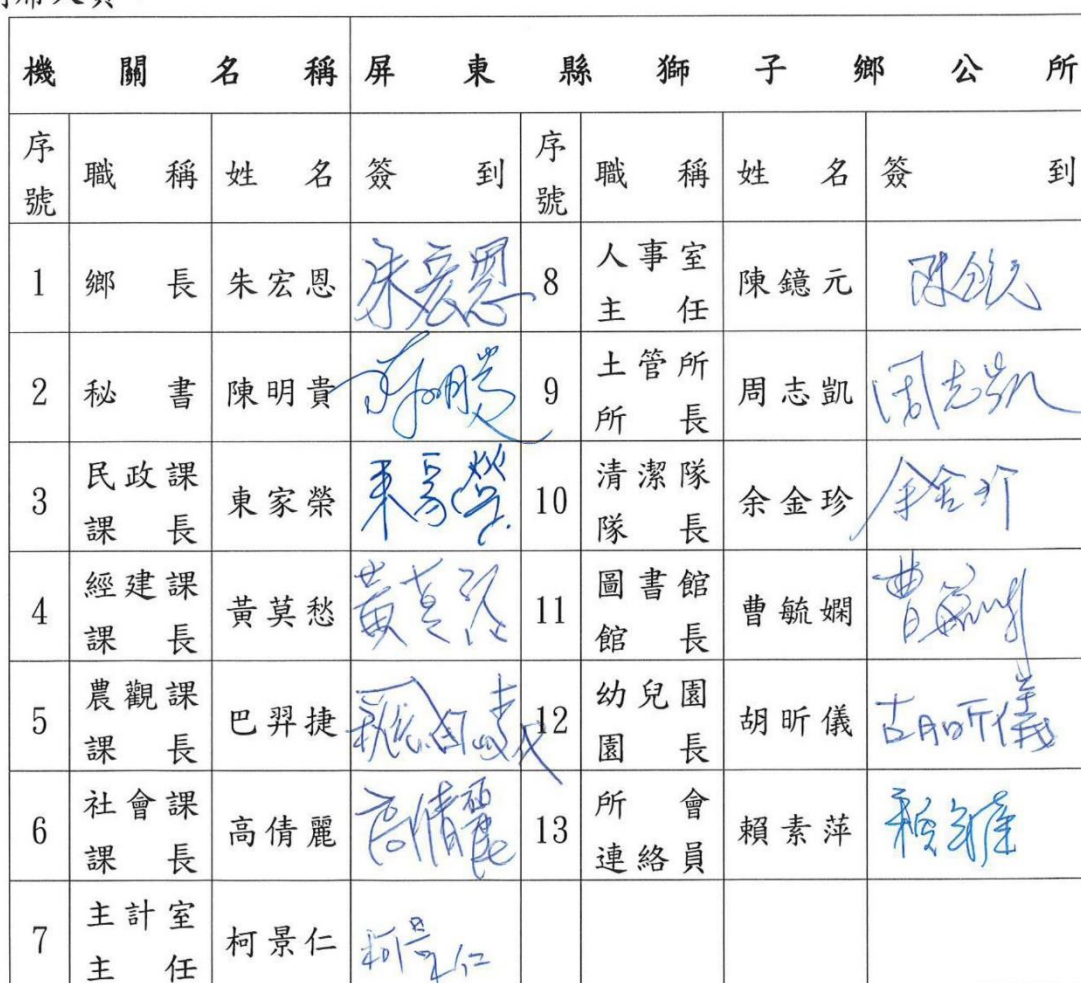 機關名稱 屏東縣獅子鄉公所
序號 職稱 姓名 簽到 序號 職稱 姓名 簽到
1 鄉長 朱宏恩 朱宏恩 8 人事室主任 陳鐿元 陳鐿元
2 秘書 陳明貴 陳明貴 9 土管所所長 周志凱 周志凱
3 民政課課長 東家榮 東家榮 10 清潔隊隊長 余金珍 余金珍
4 經建課課長 黃莫愁 黃莫愁 11 圖書館館長 曹毓嫻 曹毓嫻
5 農觀課課長 巴羿捷 12 幼兒園園長 胡昕儀 胡昕儀
6 社會課課長 高倩麗 高倩麗 13 所會連絡員 賴素萍 賴素萍
7 主計室主任 柯景仁 柯景仁